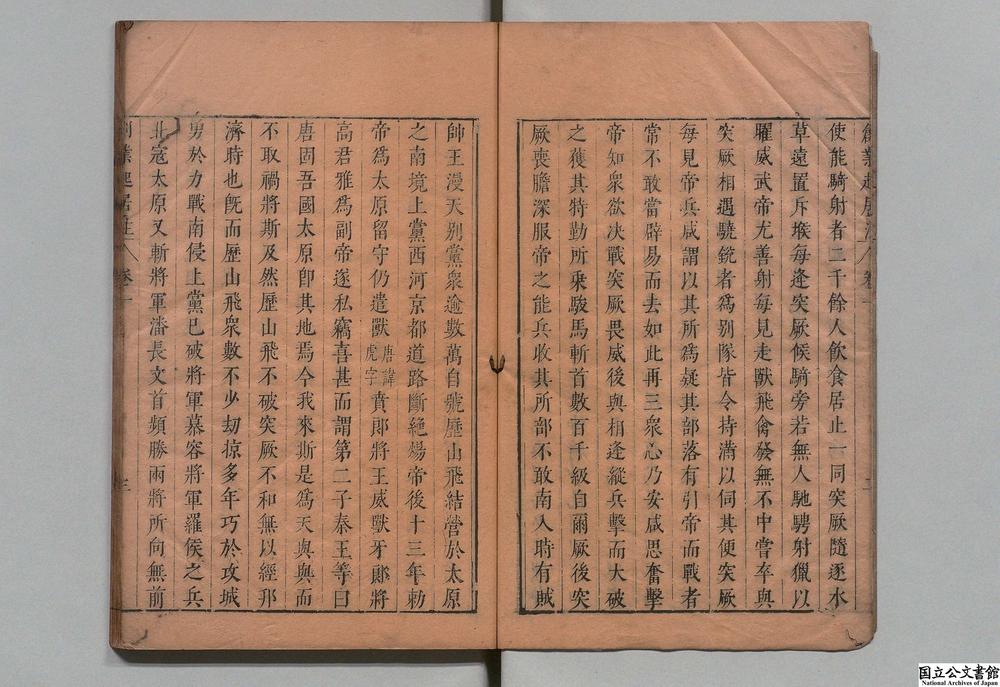 使能騎射者二千餘人飲食居止一同突厥隨逐水
草遠置斥堠每逢突厥候騎旁若無人馳騁射獵以
曜威武帝尤善射每見走獸飛禽發無不中嘗卒與
突厥相遇驍銳者爲别隊皆令持滿以伺其便突厥
每見帝兵咸謂以其所爲疑其部落有引帝而戰者
常不敢當辟易而去如此再三衆心乃安咸思奮擊
帝知衆欲决戰突厥畏威後與相逢縱兵擊而大破
之獲其特勤所乘駿馬斬首數百千級自爾厥後突
厥喪膽深服帝之能兵收其所部不敢南入時有賊
帥王漫天别黨衆逾數萬自號歷山飛結營於太原
之南境上黨西河京都道路斷絕煬帝後十三年勅
帝爲太原留守仍遣獸唐諱虎字賁郎將王威獸牙郎將
高君雅爲副帝遂私竊喜甚而謂第二子秦王等曰
唐固吾國太原卽其地焉今我來斯是爲天與與而
不取禍將斯及然歷山飛不破突厥不和無以經邦
濟時也旣而歷山飛衆數不少劫掠多年巧於攻城
勇於力戰南侵上黨已破將軍慕容將軍羅侯之兵
北寇太原又斬將軍潘長文首頻勝兩將所向無前
国立公文書館
National Archives of Japan